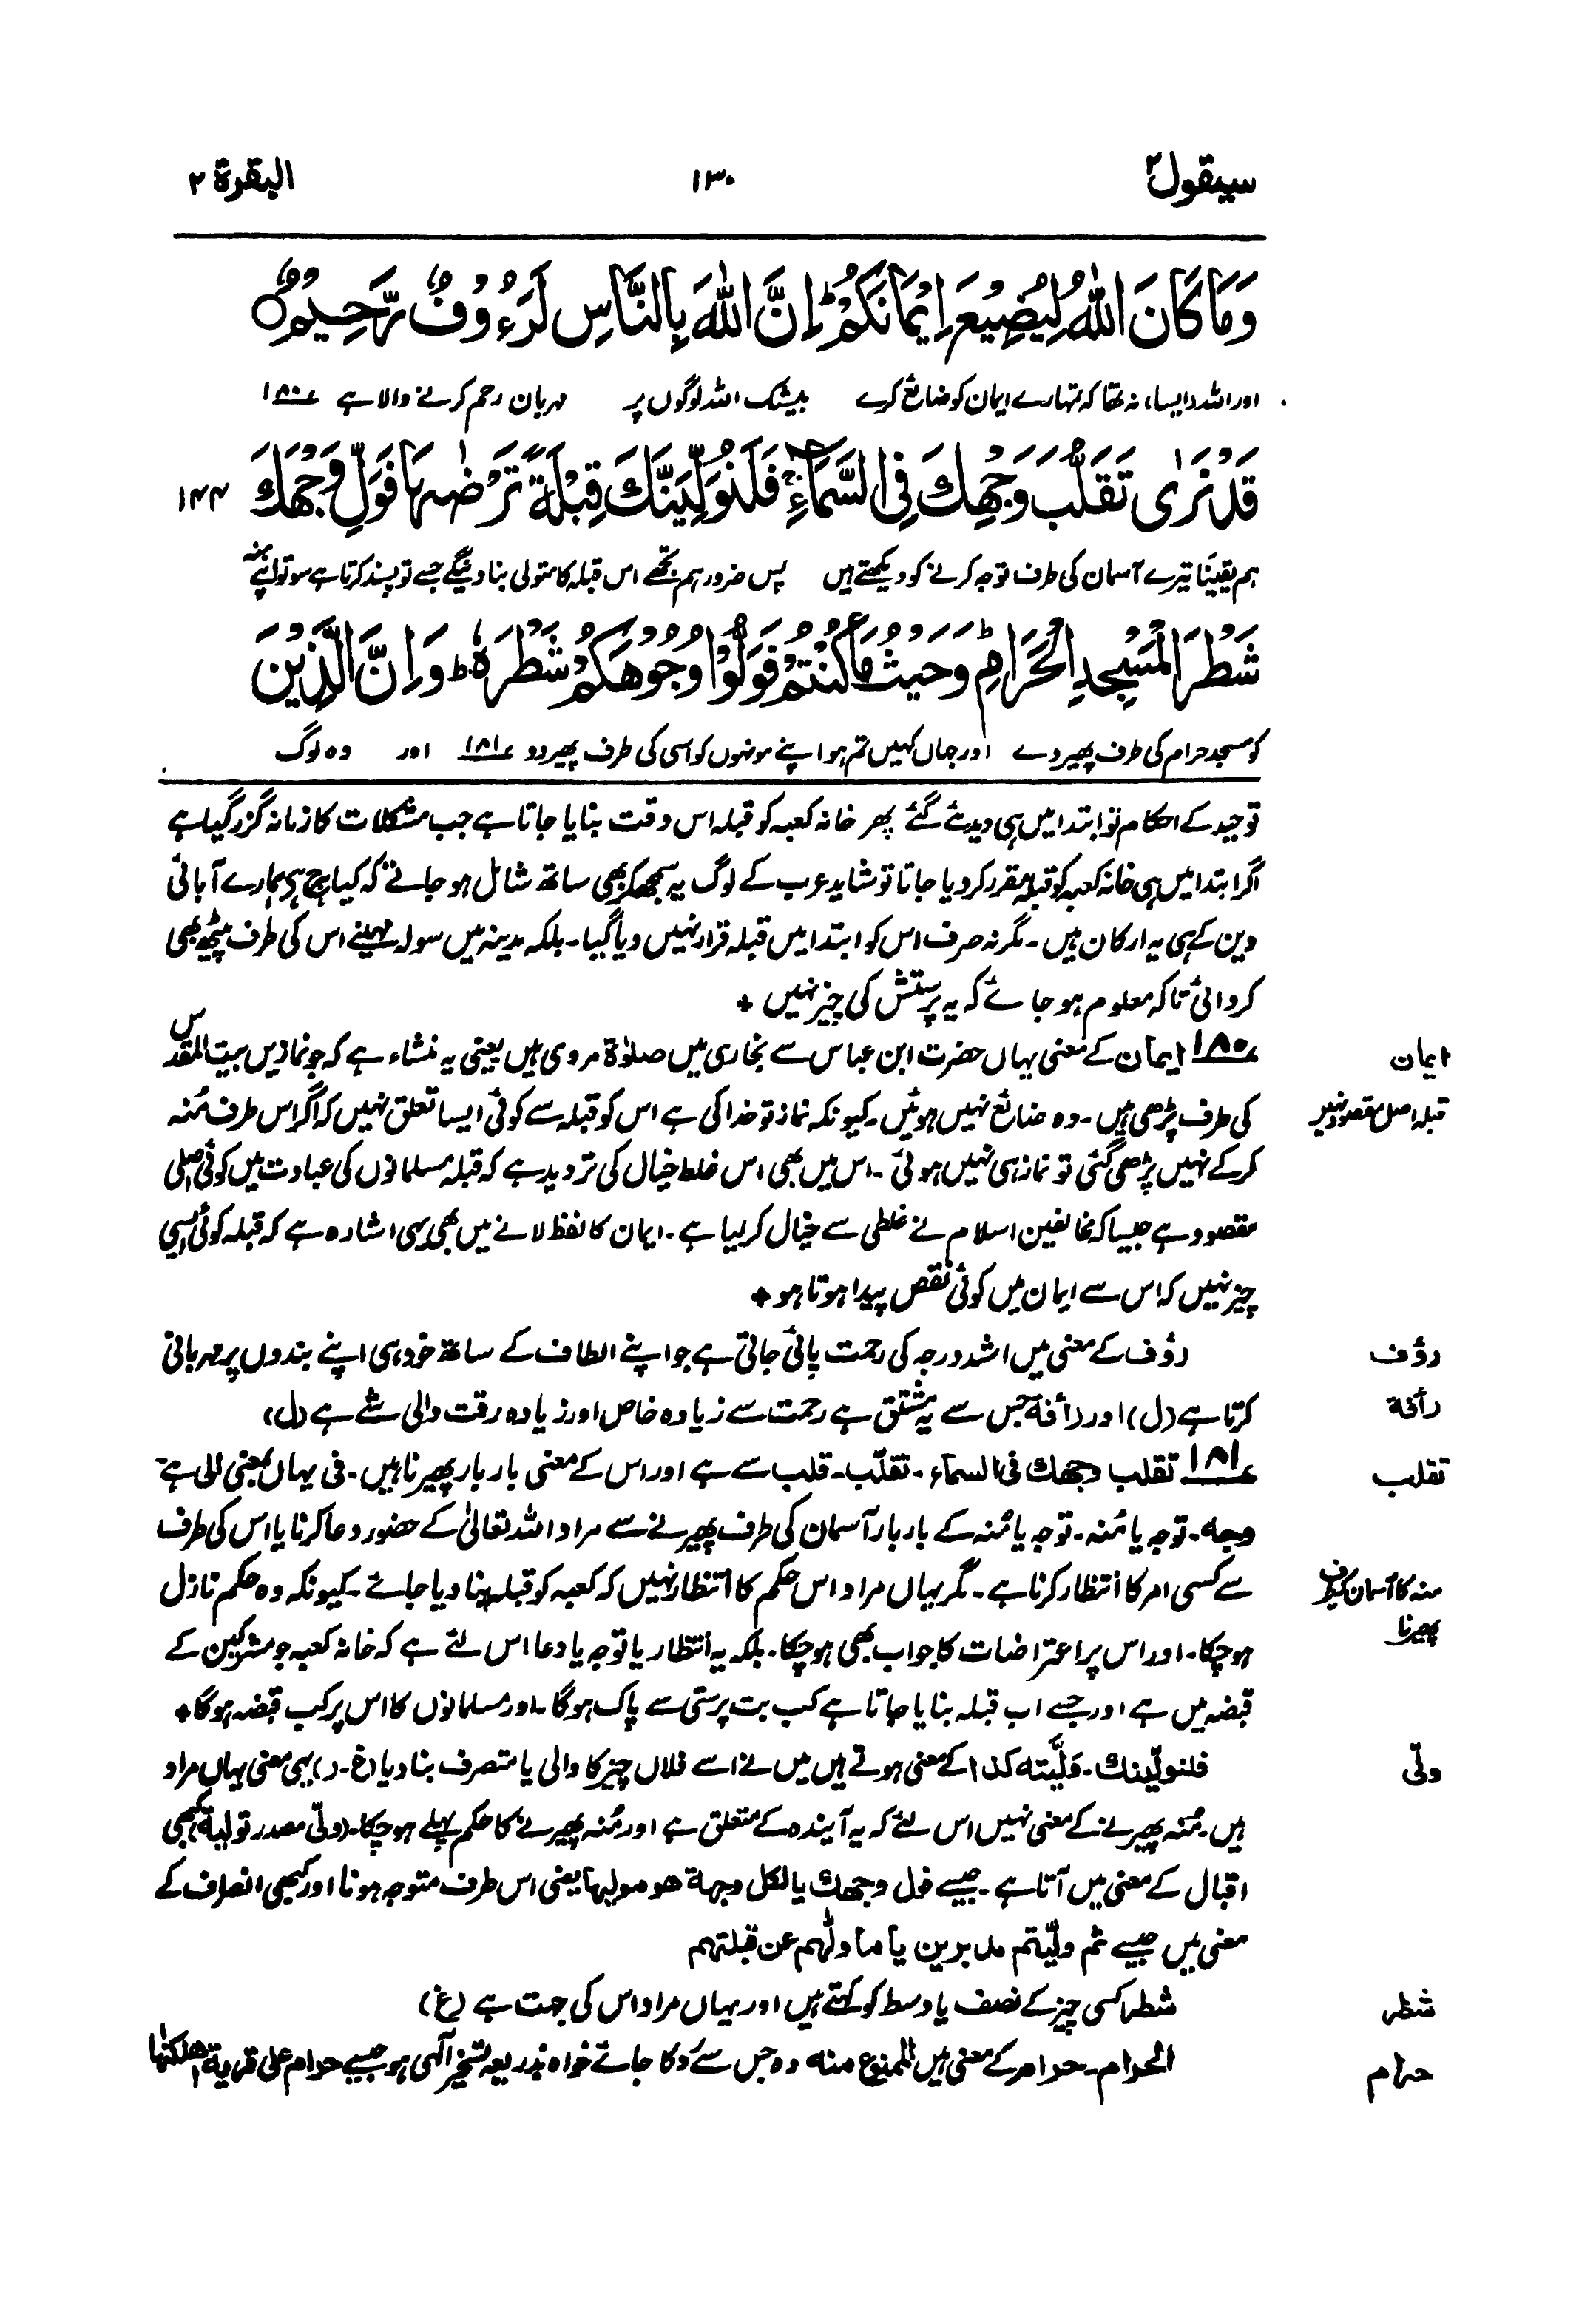 سیقول ۲ ۱۳۰ البقرة ۲
وَمَا كَانَ اللّٰهُ لِيُضِيْعَ اِيْمَانَكُمْ ؕ اِنَّ اللّٰهَ بِالنَّاسِ لَرَءُوْفٌ رَّحِيْمٌ ○
اور اللہ (ایسا) نہ تھا کہ تمہارے ایمان کو ضائع کرے بیشک اللہ لوگوں پر مہربان رحم کرنے والا ہے ۱۸۰
قَدْ نَرٰى تَقَلُّبَ وَجْهِكَ فِى السَّمَآءِ ۚ فَلَنُوَلِّيَنَّكَ قِبْلَةً تَرْضٰىهَا فَوَلِّ وَجْهَكَ ۱۴۴
ہم یقینًا تیرے آسمان کی طرف توجہ کرنے کو دیکھتے ہیں پس ضرور ہم تجھے اس قبلہ کا متولی بنا دینگے جسے تو پسند کرتا ہے سو تو اپنے منہ
شَطْرَ الْمَسْجِدِ الْحَرَامِ ؕ وَحَيْثُ مَا كُنْتُمْ فَوَلُّوْا وُجُوْهَكُمْ شَطْرَهٗ ؕ وَاِنَّ الَّذِيْنَ
کو مسجد حرام کی طرف پھیر دے اور جہاں کہیں تم ہو اپنے مونہوں کو اسی کی طرف پھیر دو ۱۸۱ اور وہ لوگ
توحید کے احکام تو ابتدا میں ہی دیدئے گئے پھر خانہ کعبہ کو قبلہ اس وقت بنایا جاتا ہے جب مشکلات کا زمانہ گزر گیا ہے
اگر ابتدا میں ہی خانہ کعبہ کو قبلہ مقرر کر دیا جاتا تو شاید عرب کے لوگ یہ سمجھ کر بھی ساتھ شامل ہو جاتے کہ کیا ہرج ہے ہمارے آبائی
دین کے ہی یہ ارکان ہیں۔ مگر نہ صرف اس کو ابتدا میں قبلہ قرار نہیں دیا گیا۔ بلکہ مدینہ میں سولہ مہینے اس کی طرف پیٹھ بھی
کروائی تاکہ معلوم ہو جائے کہ یہ پرستش کی چیز نہیں +
ایمان
۱۸۰ ایمان کے معنی یہاں حضرت ابن عباس سے بخاری میں صلوٰۃ مروی ہیں یعنی یہ منشاء ہے کہ جو نمازیں بیت المقدس
قبلہ اصل مقصود نہیں
کی طرف پڑھی ہیں۔ وہ ضائع نہیں ہوئیں۔ کیونکہ نماز تو خدا کی ہے اس کو قبلہ سے کوئی ایسا تعلق نہیں کہ اگر اس طرف مُنہ
کر کے نہیں پڑھی گئی تو نماز ہی نہیں ہوئی۔ اس میں بھی اس غلط خیال کی تردید ہے کہ قبلہ مسلمانوں کی عبادت میں کوئی اصلی
مقصود ہے جیسا کہ مخالفین اسلام نے غلطی سے خیال کر لیا ہے۔ ایمان کا لفظ لانے میں بھی یہی اشارہ ہے کہ قبلہ کوئی ایسی
چیز نہیں کہ اس سے ایمان میں کوئی نقص پیدا ہوتا ہو +
رؤف
رؤف کے معنی میں اشد درجہ کی رحمت پائی جاتی ہے جو اپنے الطاف کے ساتھ خود ہی اپنے بندوں پر مہربانی
رأفة
کرتا ہے (ل) اور رأفة جس سے یہ مشتق ہے رحمت سے زیادہ خاص اور زیادہ رقت والی شے ہے (ل)
تقلب
۱۸۱ تقلب وجهك فی السماء۔ تقلّب۔ قلب سے ہے اور اس کے معنی بار بار پھیرنا ہیں۔ فی یہاں بمعنی الی ہے۔
وجه۔ توجہ یا مُنہ۔ توجہ یا مُنہ کے بار بار آسمان کی طرف پھیرنے سے مراد اللہ تعالیٰ کے حضور دعا کرنا یا اس کی طرف
منہ کا آسمان کیطرف پھیرنا
سے کسی امر کا انتظار کرنا ہے۔ مگر یہاں مراد اس حکم کا انتظار نہیں کہ کعبہ کو قبلہ بنا دیا جائے۔ کیونکہ وہ حکم نازل
ہو چکا۔ اور اس پر اعتراضات کا جواب بھی ہو چکا۔ بلکہ یہ انتظار یا توجہ یا دعا اس لئے ہے کہ خانہ کعبہ جو مشرکین کے
قبضہ میں ہے اور جسے اب قبلہ بنایا جاتا ہے کب بت پرستی سے پاک ہوگا۔ اور مسلمانوں کا اس پر کب قبضہ ہوگا +
ولّی
فلنولّینك۔ وَلَّیته کذا کے معنی ہوتے ہیں میں نے اسے فلاں چیز کا والی یا متصرف بنا دیا (غ۔ر) یہی معنی یہاں مراد
ہیں۔ مُنہ پھیرنے کے معنی نہیں اس لئے کہ یہ آیندہ کے متعلق ہے اور مُنہ پھیرنے کا حکم پہلے ہو چکا۔ (ولّی مصدر تولیة) کبھی
اقبال کے معنی میں آتا ہے۔ جیسے فول وجهك یا لکل وجهة هو مولیها یعنی اس طرف متوجہ ہونا اور کبھی انصراف کے
معنی میں جیسے ثم ولّیتم مدبرین یا ما ولّٰهم عن قبلتهم
شطر
شطر کسی چیز کے نصف یا وسط کو کہتے ہیں اور یہاں مراد اس کی جہت ہے (غ)
حرام
الحرام۔ حرام کے معنی ہیں الممنوع منه وہ جس سے روکا جائے خواہ بذریعہ تسخیر الٰہی ہو جیسے حرام علی قریة اهلکنٰها